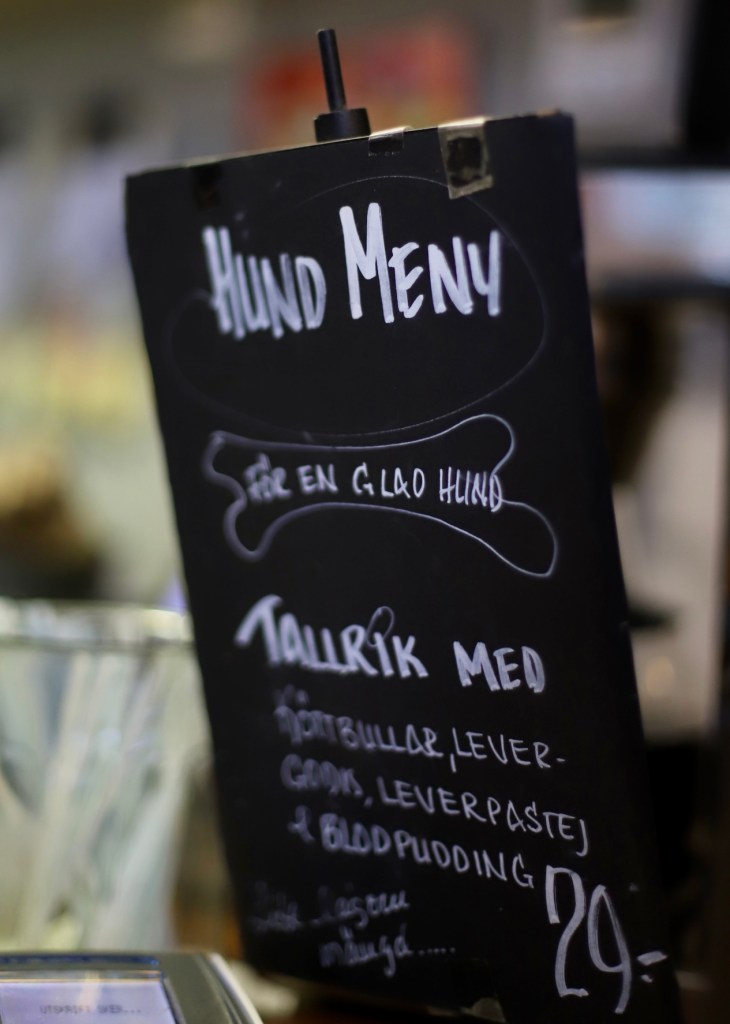 HUND MENY
FÖR EN GLAD HUND
TALLRIK MED
KÖTTBULLAR, LEVER-
GODIS, LEVERPASTEJ
& BLODPUDDING
29:-